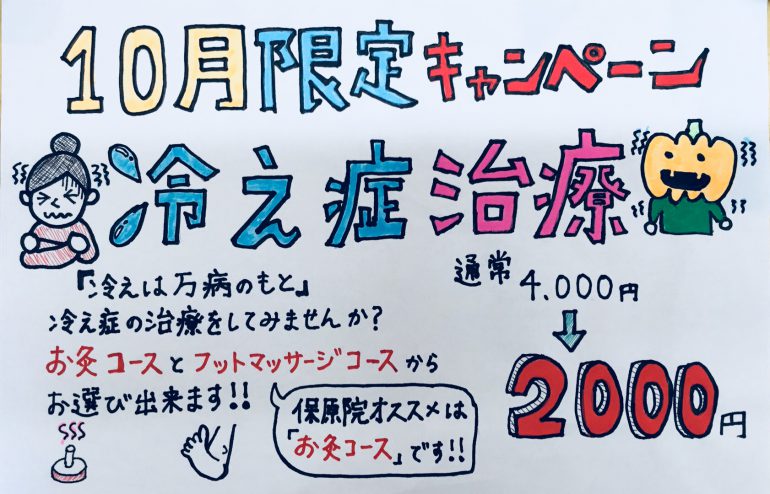 10月限定キャンペーン
冷え症治療
『冷えは万病のもと』
冷え症の治療をしてみませんか?
お灸コースとフットマッサージコースから
お選び出来ます!!
保原院オススメは
「お灸コース」です!!
通常 4.000円
2000円